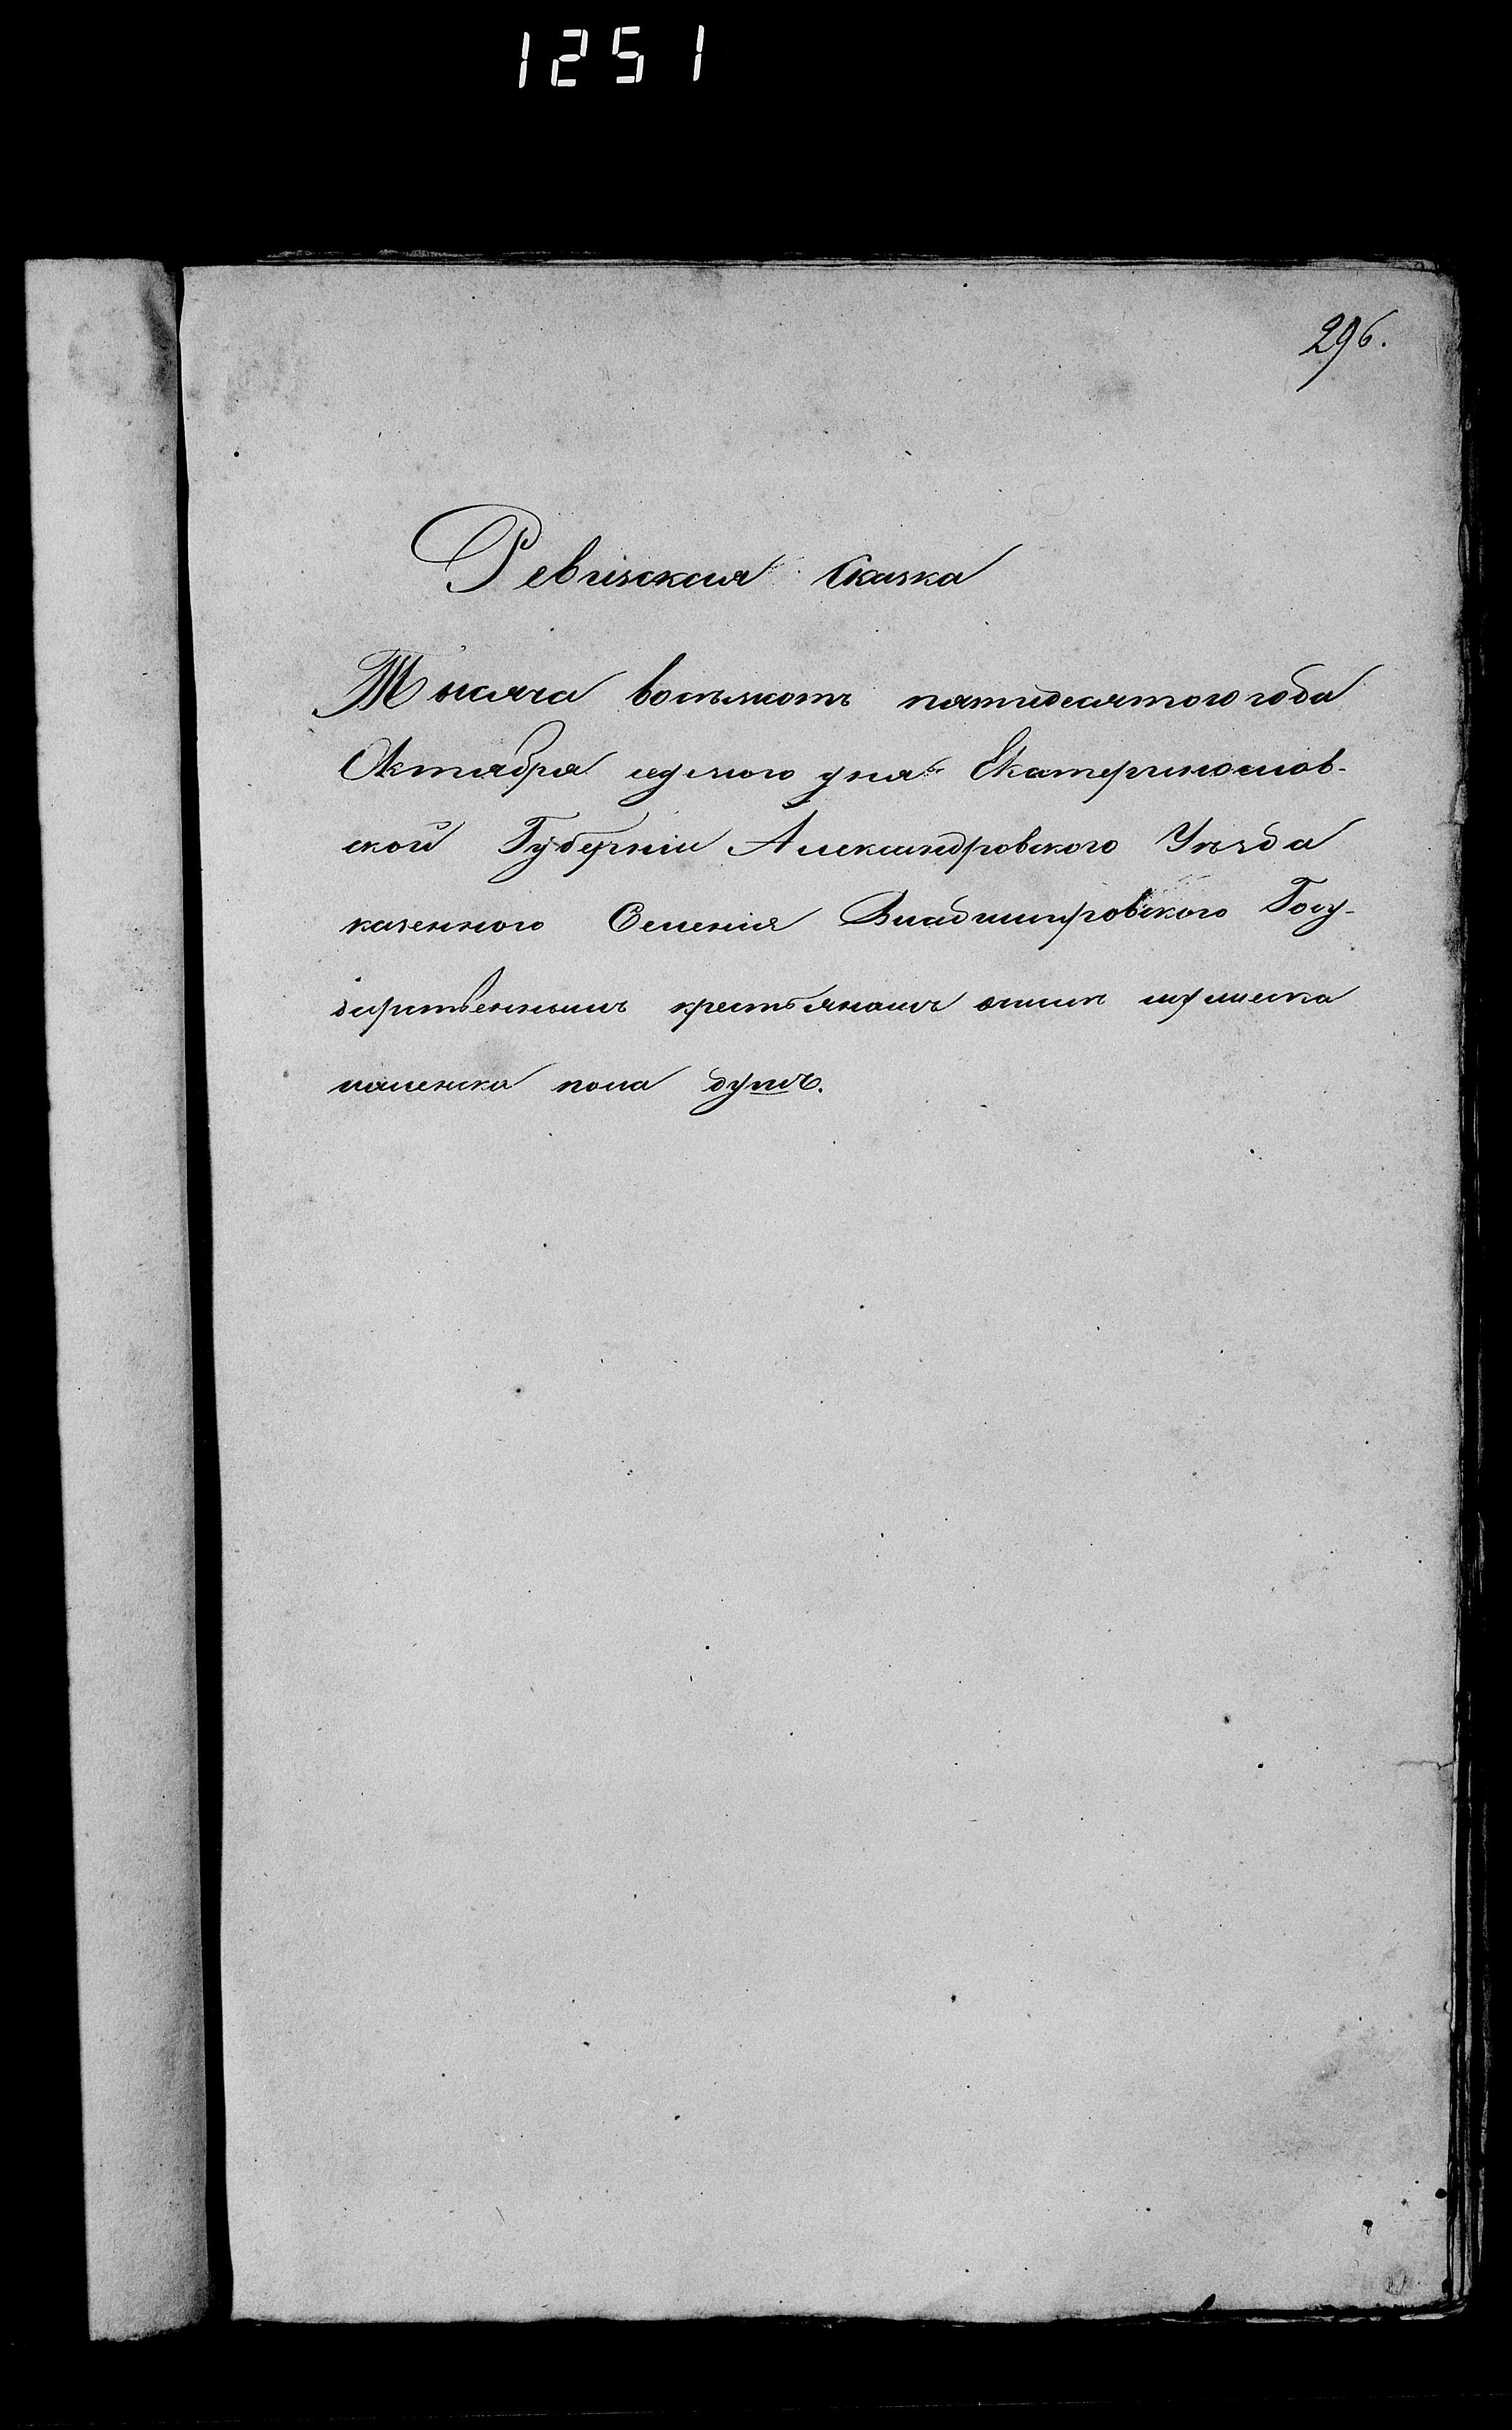 1251
296.
Ревизская Сказка
Тысяча восемсотъ пятидесятого года
Октября седмого дня Екатеринослав-
ской Губерніи Александровского Уѣзда
казенного Селенія Владимировского Госу-
дарственнымъ крестьянамъ мужеска
иженска пола душъ.